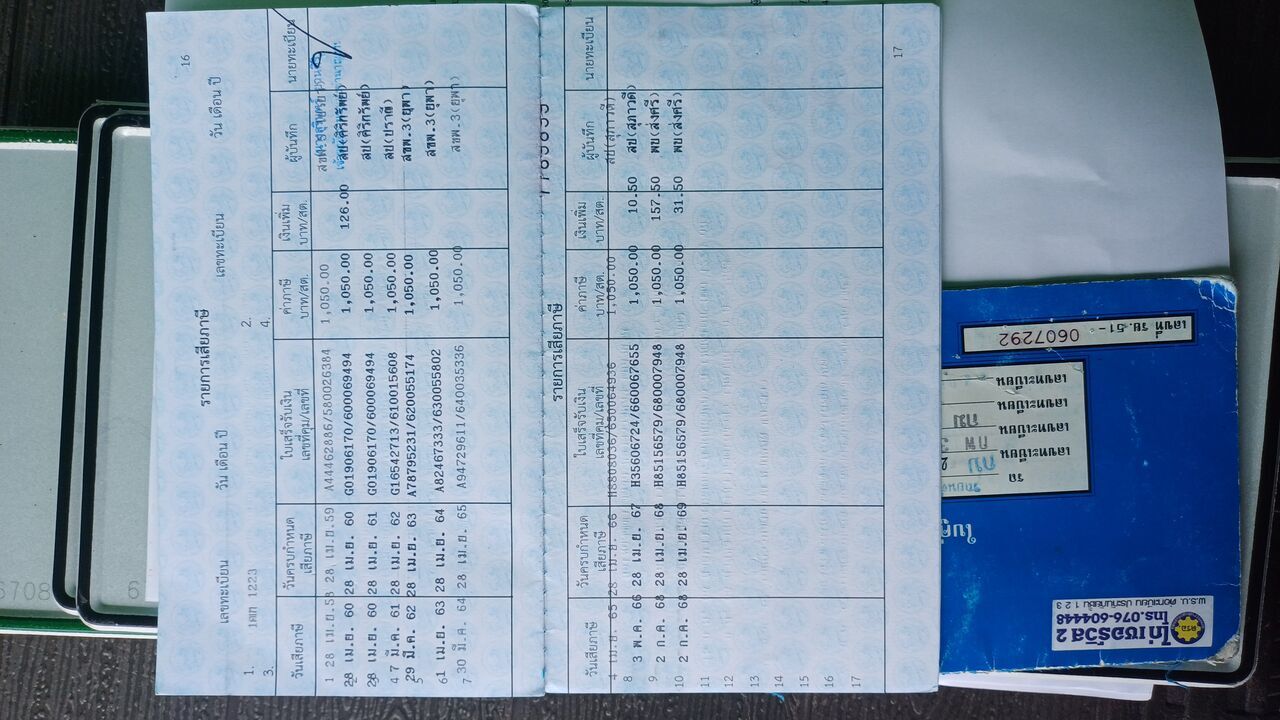 16
รายการเสียภาษี
เลขทะเบียน วัน เดือน ปี เลขทะเบียน วัน เดือน ปี
1. 1ฒก 1223 2.
3. 4.
วันเสียภาษี วันครบกำหนด เสียภาษี ใบเสร็จรับเงิน เลขที่คุม/เลขที่ ค่าภาษี บาท/สต. เงินเพิ่ม บาท/สต. ผู้บันทึก นายทะเบียน
1 28 เม.ย.58 28 เม.ย.59 A44462886/580026384 1,050.00
28 เม.ย. 60 28 เม.ย. 60 G01906170/600069494 1,050.00 126.00 สป(ศิริทรัพย์)
28 เม.ย. 60 28 เม.ย. 61 G01906170/600069494 1,050.00 สป(ศิริทรัพย์)
4 7 มี.ค. 61 28 เม.ย. 62 G16542713/610015608 1,050.00 สป(ปราณี)
5 29 มี.ค. 62 28 เม.ย. 63 A78795231/620055174 1,050.00 สขพ.3(ยุพา)
6 1 เม.ย. 63 28 เม.ย. 64 A82467333/630055802 1,050.00 สขพ.3(ยุพา)
7 30 มี.ค. 64 28 เม.ย. 65 A94729611/640035336 1,050.00 สขพ.3(ยุพา)
รายการเสียภาษี
วันเสียภาษี วันครบกำหนด เสียภาษี ใบเสร็จรับเงิน เลขที่คุม/เลขที่ ค่าภาษี บาท/สต. เงินเพิ่ม บาท/สต. ผู้บันทึก นายทะเบียน
4 เม.ย. 65 28 เม.ย. 66 1,050.00 สป(สุภาวดี)
8 3 พ.ค. 66 28 เม.ย. 67 H35606724/660067655 1,050.00 10.50 สป(สุภาวดี)
9 2 ก.ค. 68 28 เม.ย. 68 H85156579/680007948 1,050.00 157.50 พข(ส่งศรี)
10 2 ก.ค. 68 28 เม.ย. 69 H85156579/680007948 1,050.00 31.50 พข(ส่งศรี)
11
12
13
14
15
16
17
17
เลขที่ รย.51-
0607292
เลขทะเบียน
เลขทะเบียน
เลขทะเบียน
เลขทะเบียน
รถ
ไก่เซอร์วิส 2
โทร.076-604448
พ.ร.บ. ต่อทะเบียน ประกันภัยชั้น 1 2 3
6708
6